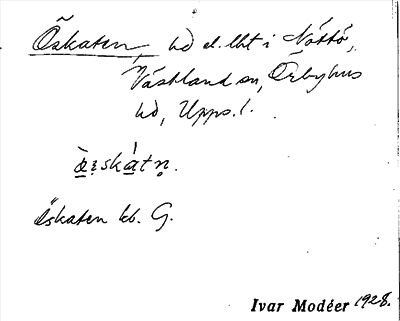 Öskaten, hd el. lht i Nöttö,
Västland sn, Örbyhus
hd, Upps. l.
ö̀skàtn̥.
Öskaten kb. G.
Ivar Modéer 1928.